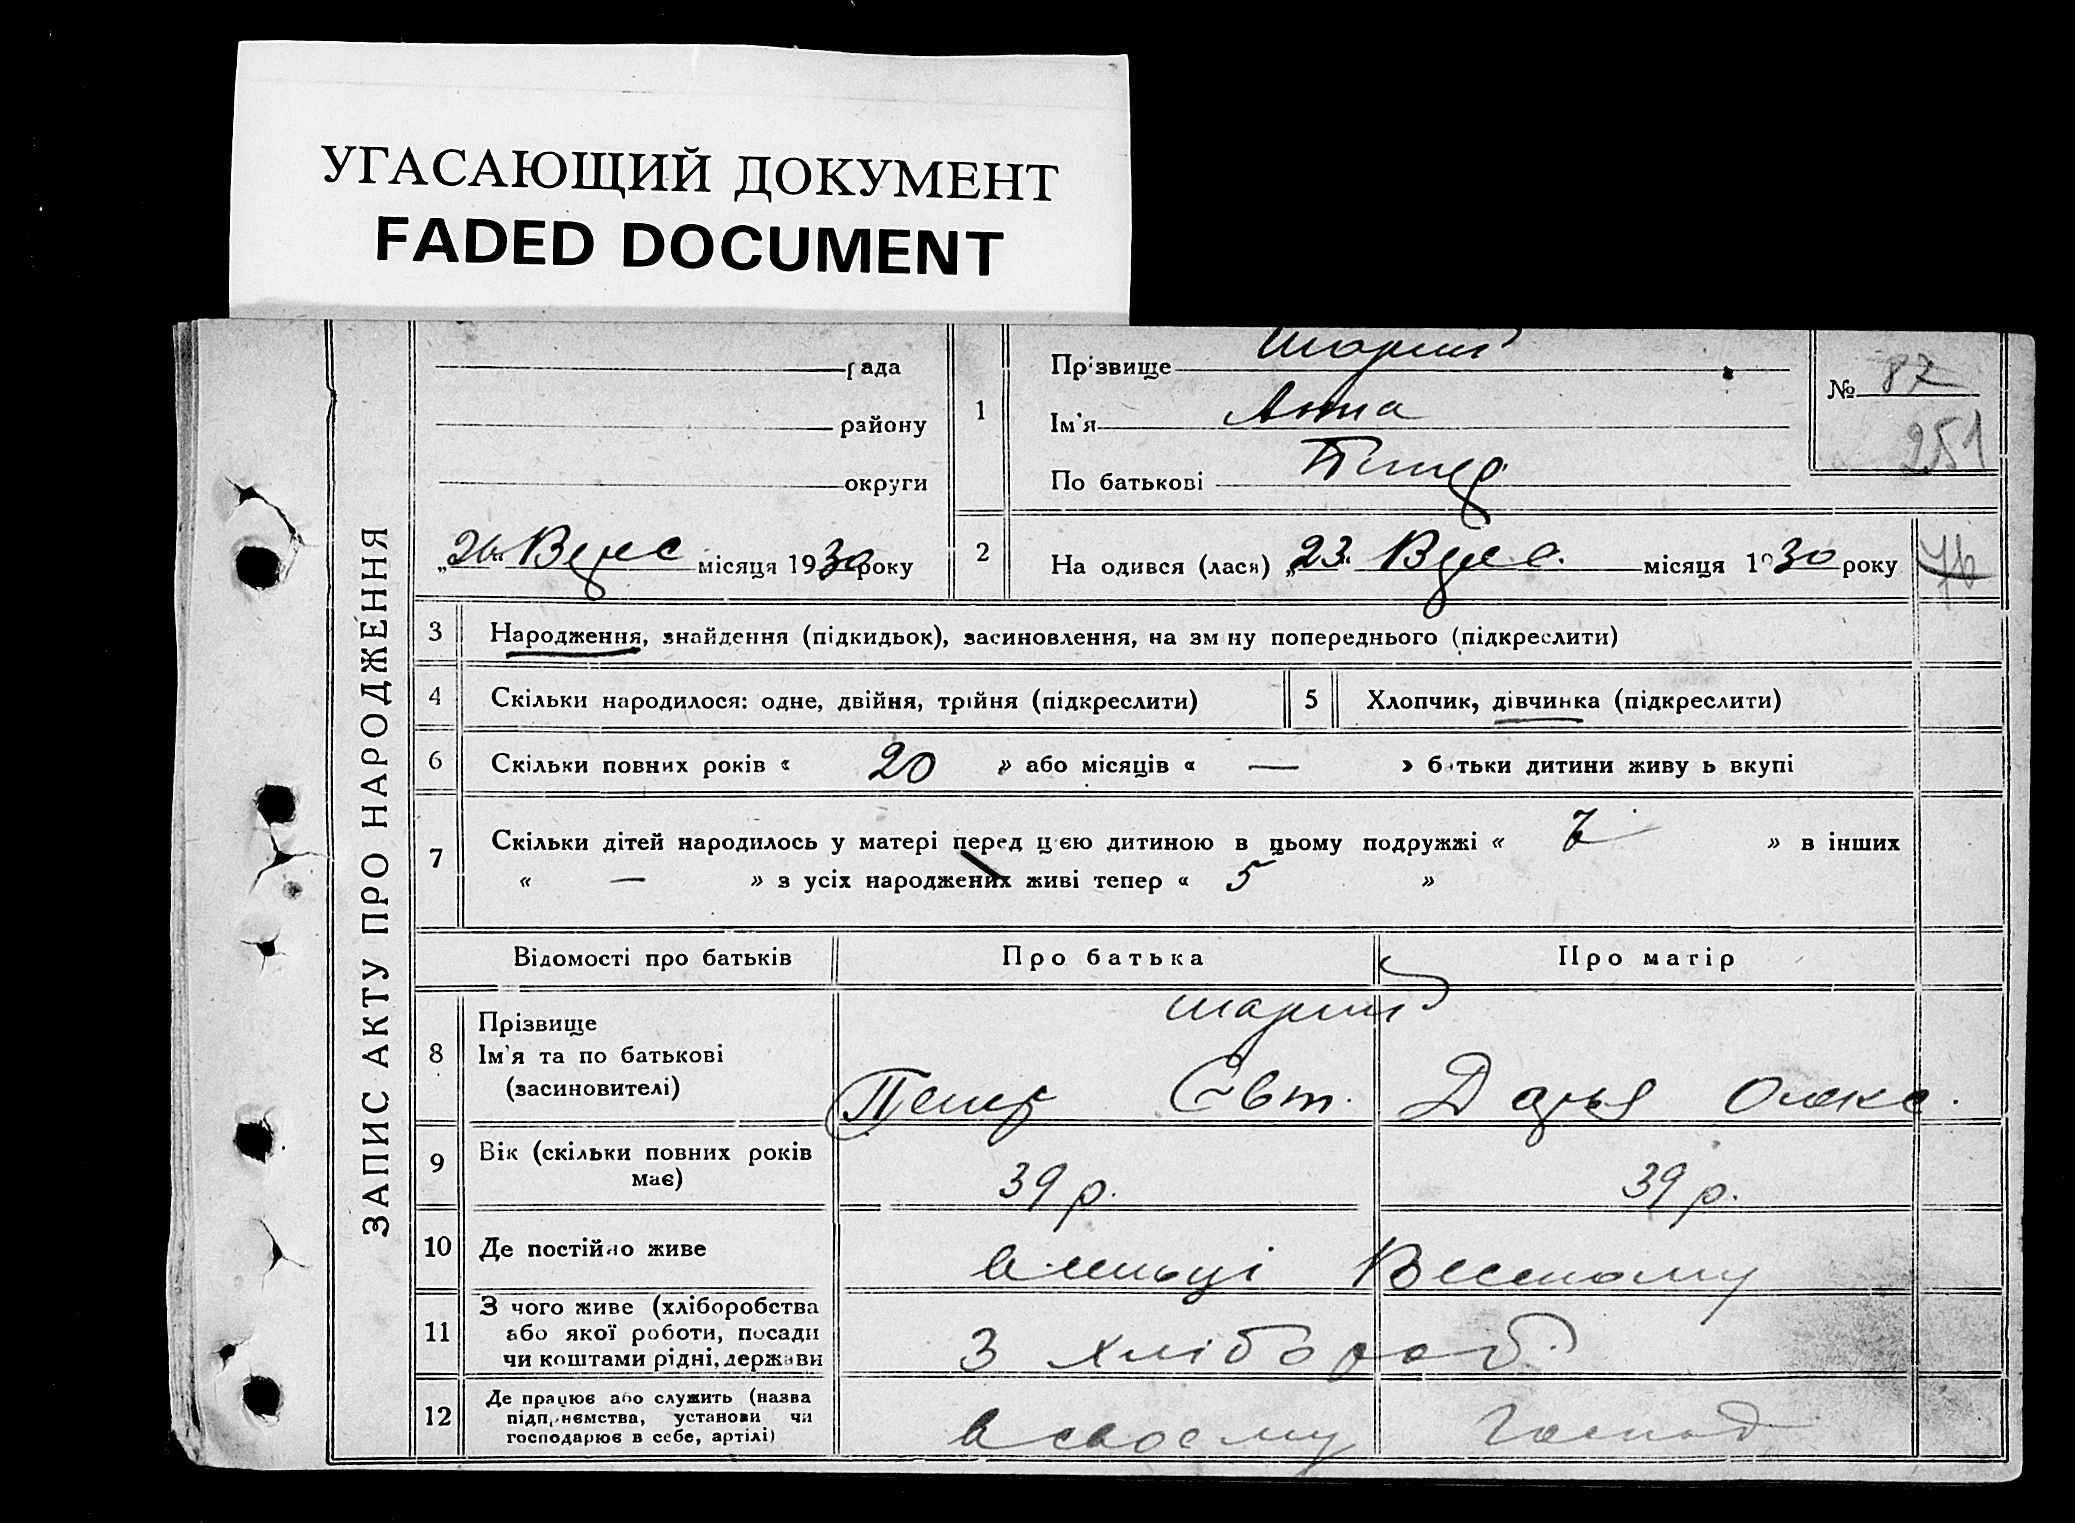 УГАСАЮЩИЙ ДОКУМЕНТ
FADED DOCUMENT
ЗАПИС АКТУ ПРО НАРОДЖЕННЯ
рада
району
округи
„26“ Верес місяця 1930 року
1
Прізвище Шарий
Ім'я Анна
По батькові Петр
№ 87
251
2
На одився (лася) „23“ Верес. місяця 1930 року
76
3 Народження, знайдення (підкидьок), засиновлення, на зм ну попереднього (підкреслити)
4 Скільки народилося: одне, двійня, трійня (підкреслити)
5 Хлопчик, дівчинка (підкреслити)
6 Скільки повних років « 20 » або місяців « — » б тьки дитини живу ь вкупі
7 Скільки дітей народилось у матері перед цією дитиною в цьому подружжі « 7 » в інших
« — » з усіх народжених живі тепер « 5 »
Відомості про батьків Про батька Про матір
8 Прізвище
Ім'я та по батькові
(засиновителі)
Шарий
Петр Євт. Дарья Олекс.
9 Вік (скільки повних років
має)
39 р. 39 р.
10 Де постійно живе
11 З чого живе (хліборобства
або якої роботи, посади
чи коштами рідні, держави
З хлібороб.
12 Де працює або служить (назва
підприємства, установи чи
господарює в себе, артілі)
в своєму господ